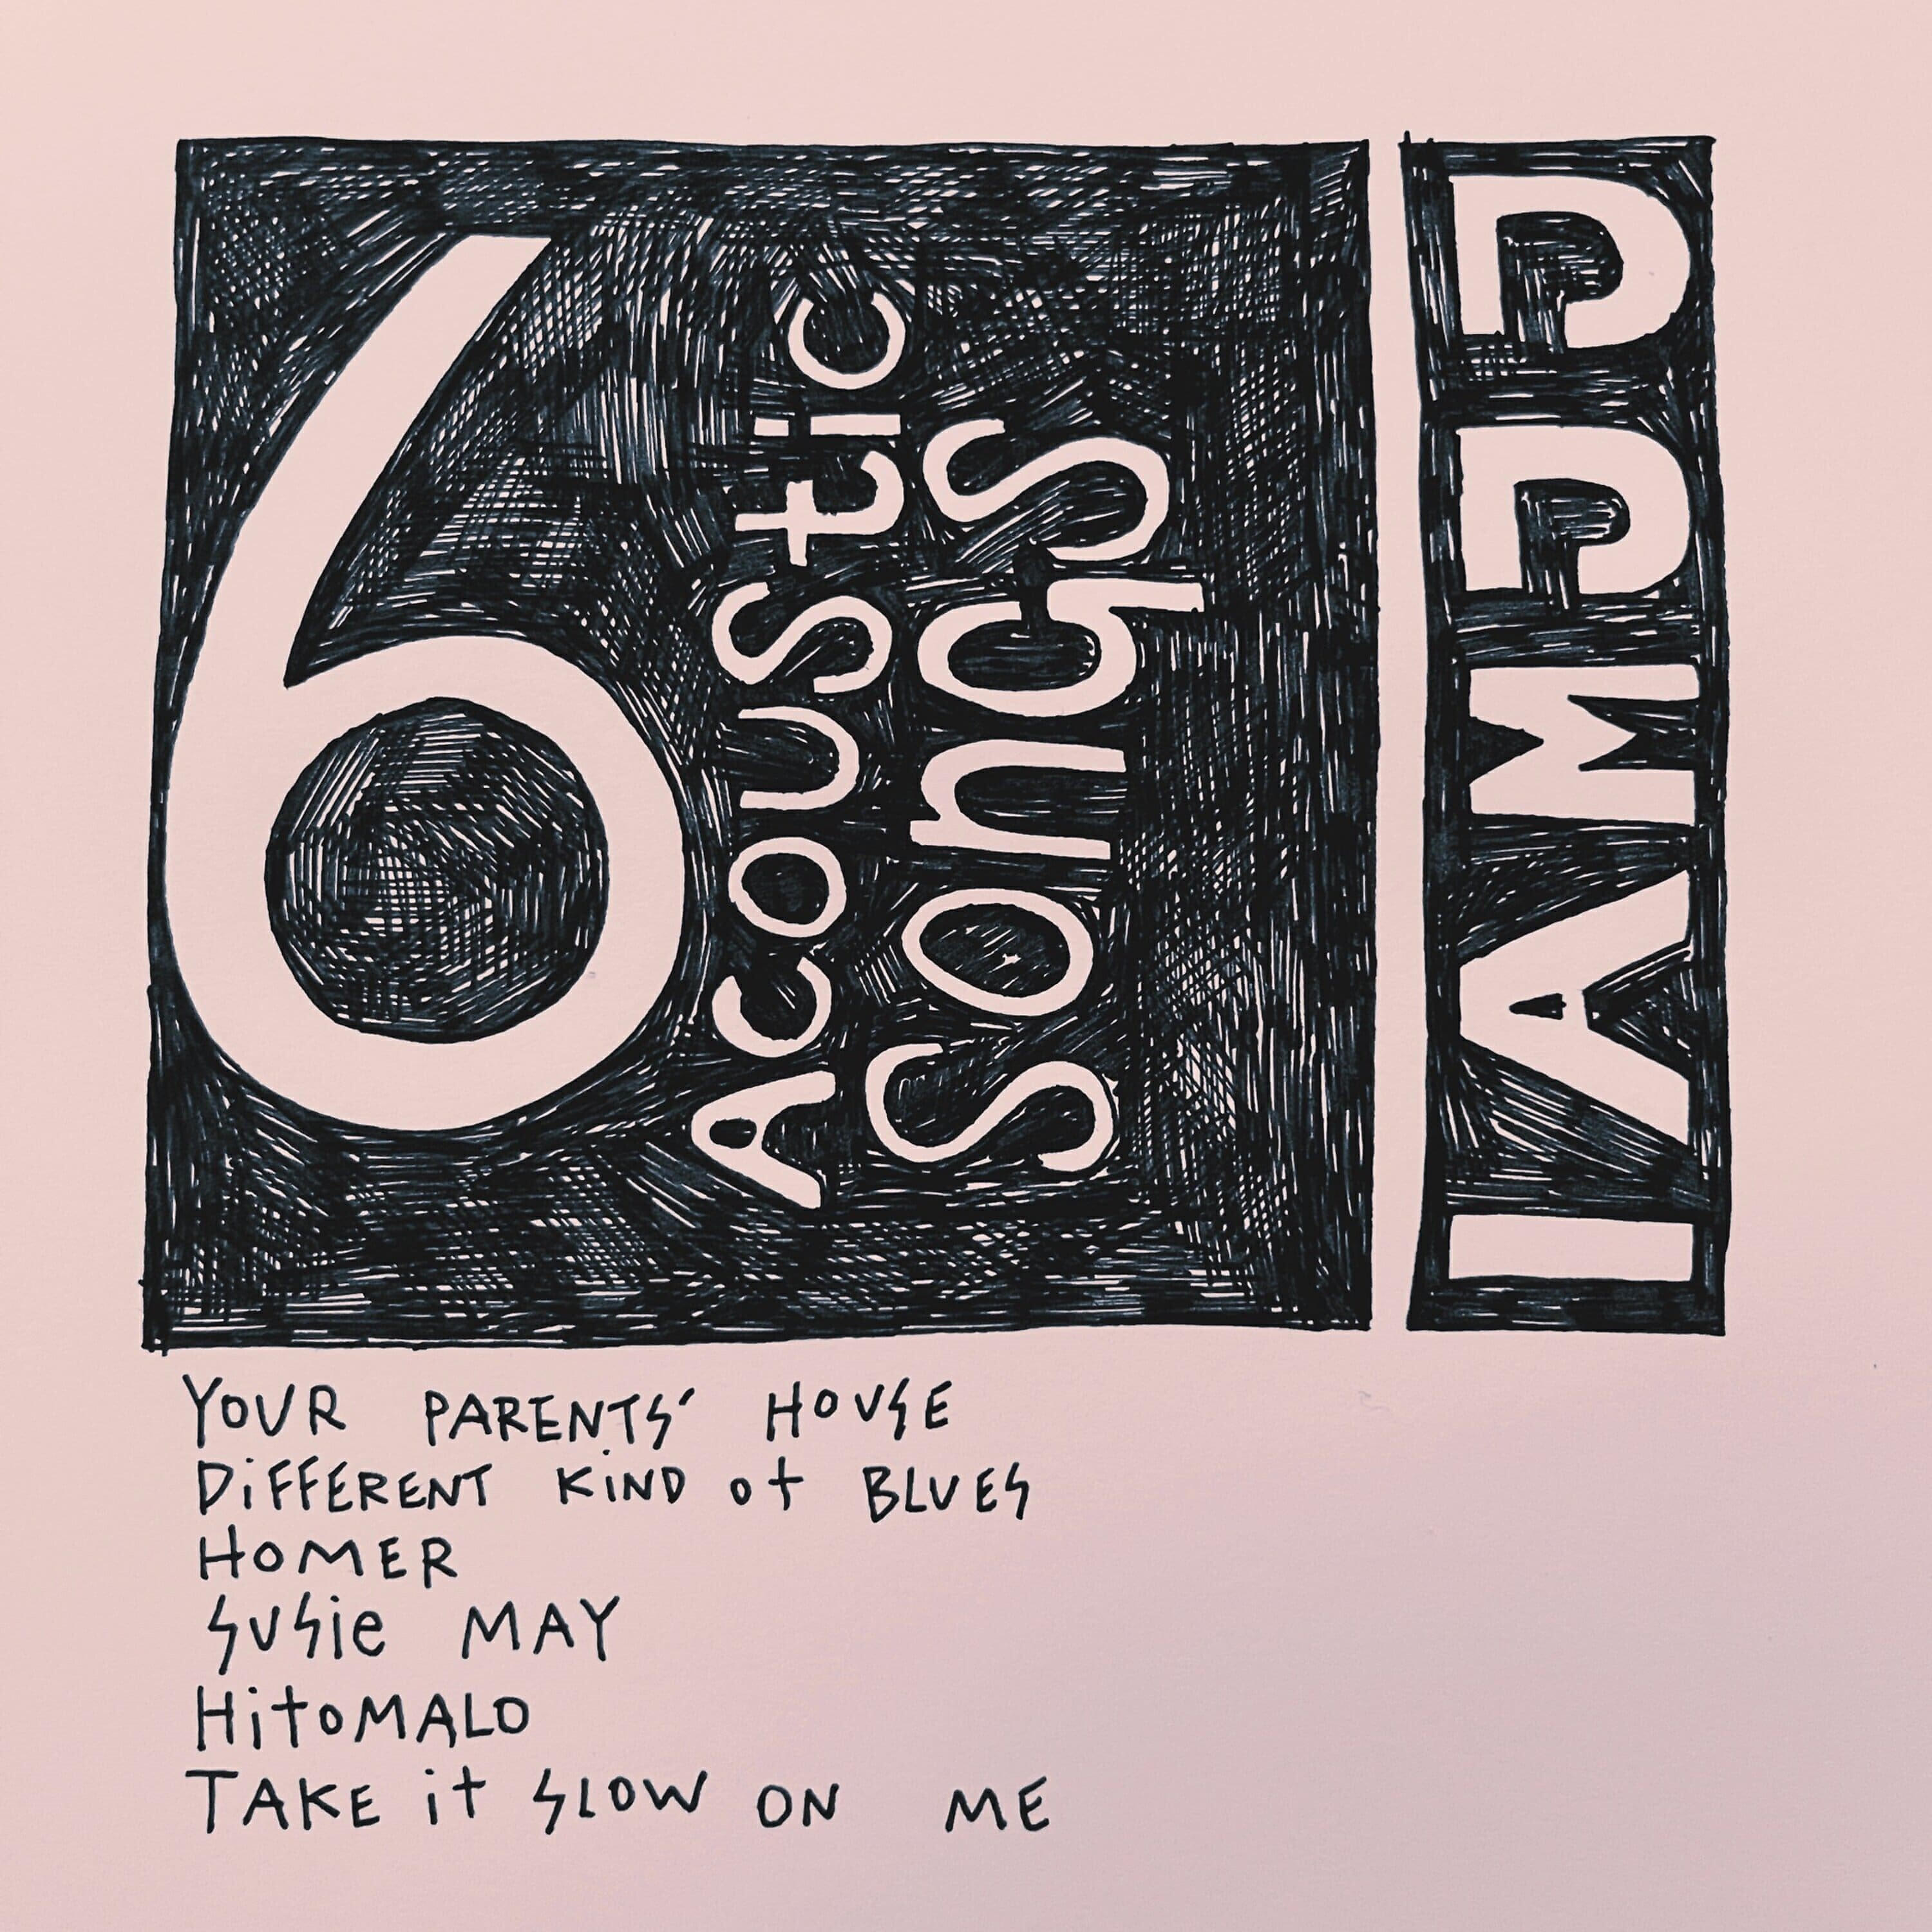 6
Acoustic
songs
I AM JJ
YOUR PARENTS' HOUSE
DiFFERENT KiND of BLUES
HOMER
SUSie MAY
HitoMALO
TAKE it SLOW ON ME